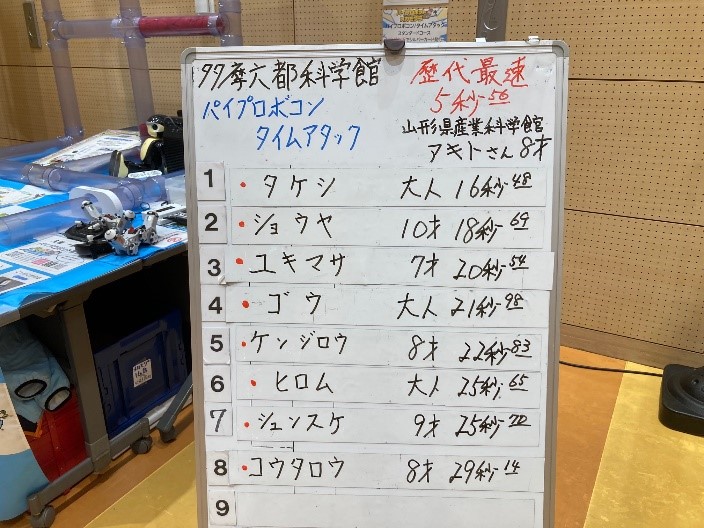 多摩六都科学館
パイプロボコン
タイムアタック
歴代最速
5秒56
山形県産業科学館
アキトさん 8才
1 • タケシ 大人 16秒48
2 • ショウヤ 10才 18秒69
3 • ユキマサ 7才 20秒54
4 • ゴウ 大人 21秒98
5 • ケンジロウ 8才 22秒83
6 • ヒロム 大人 25秒65
7 • シュンスケ 9才 25秒70
8 • コウタロウ 8才 29秒14
9
パイプロボコン!タイムアタック
スタンダードコース